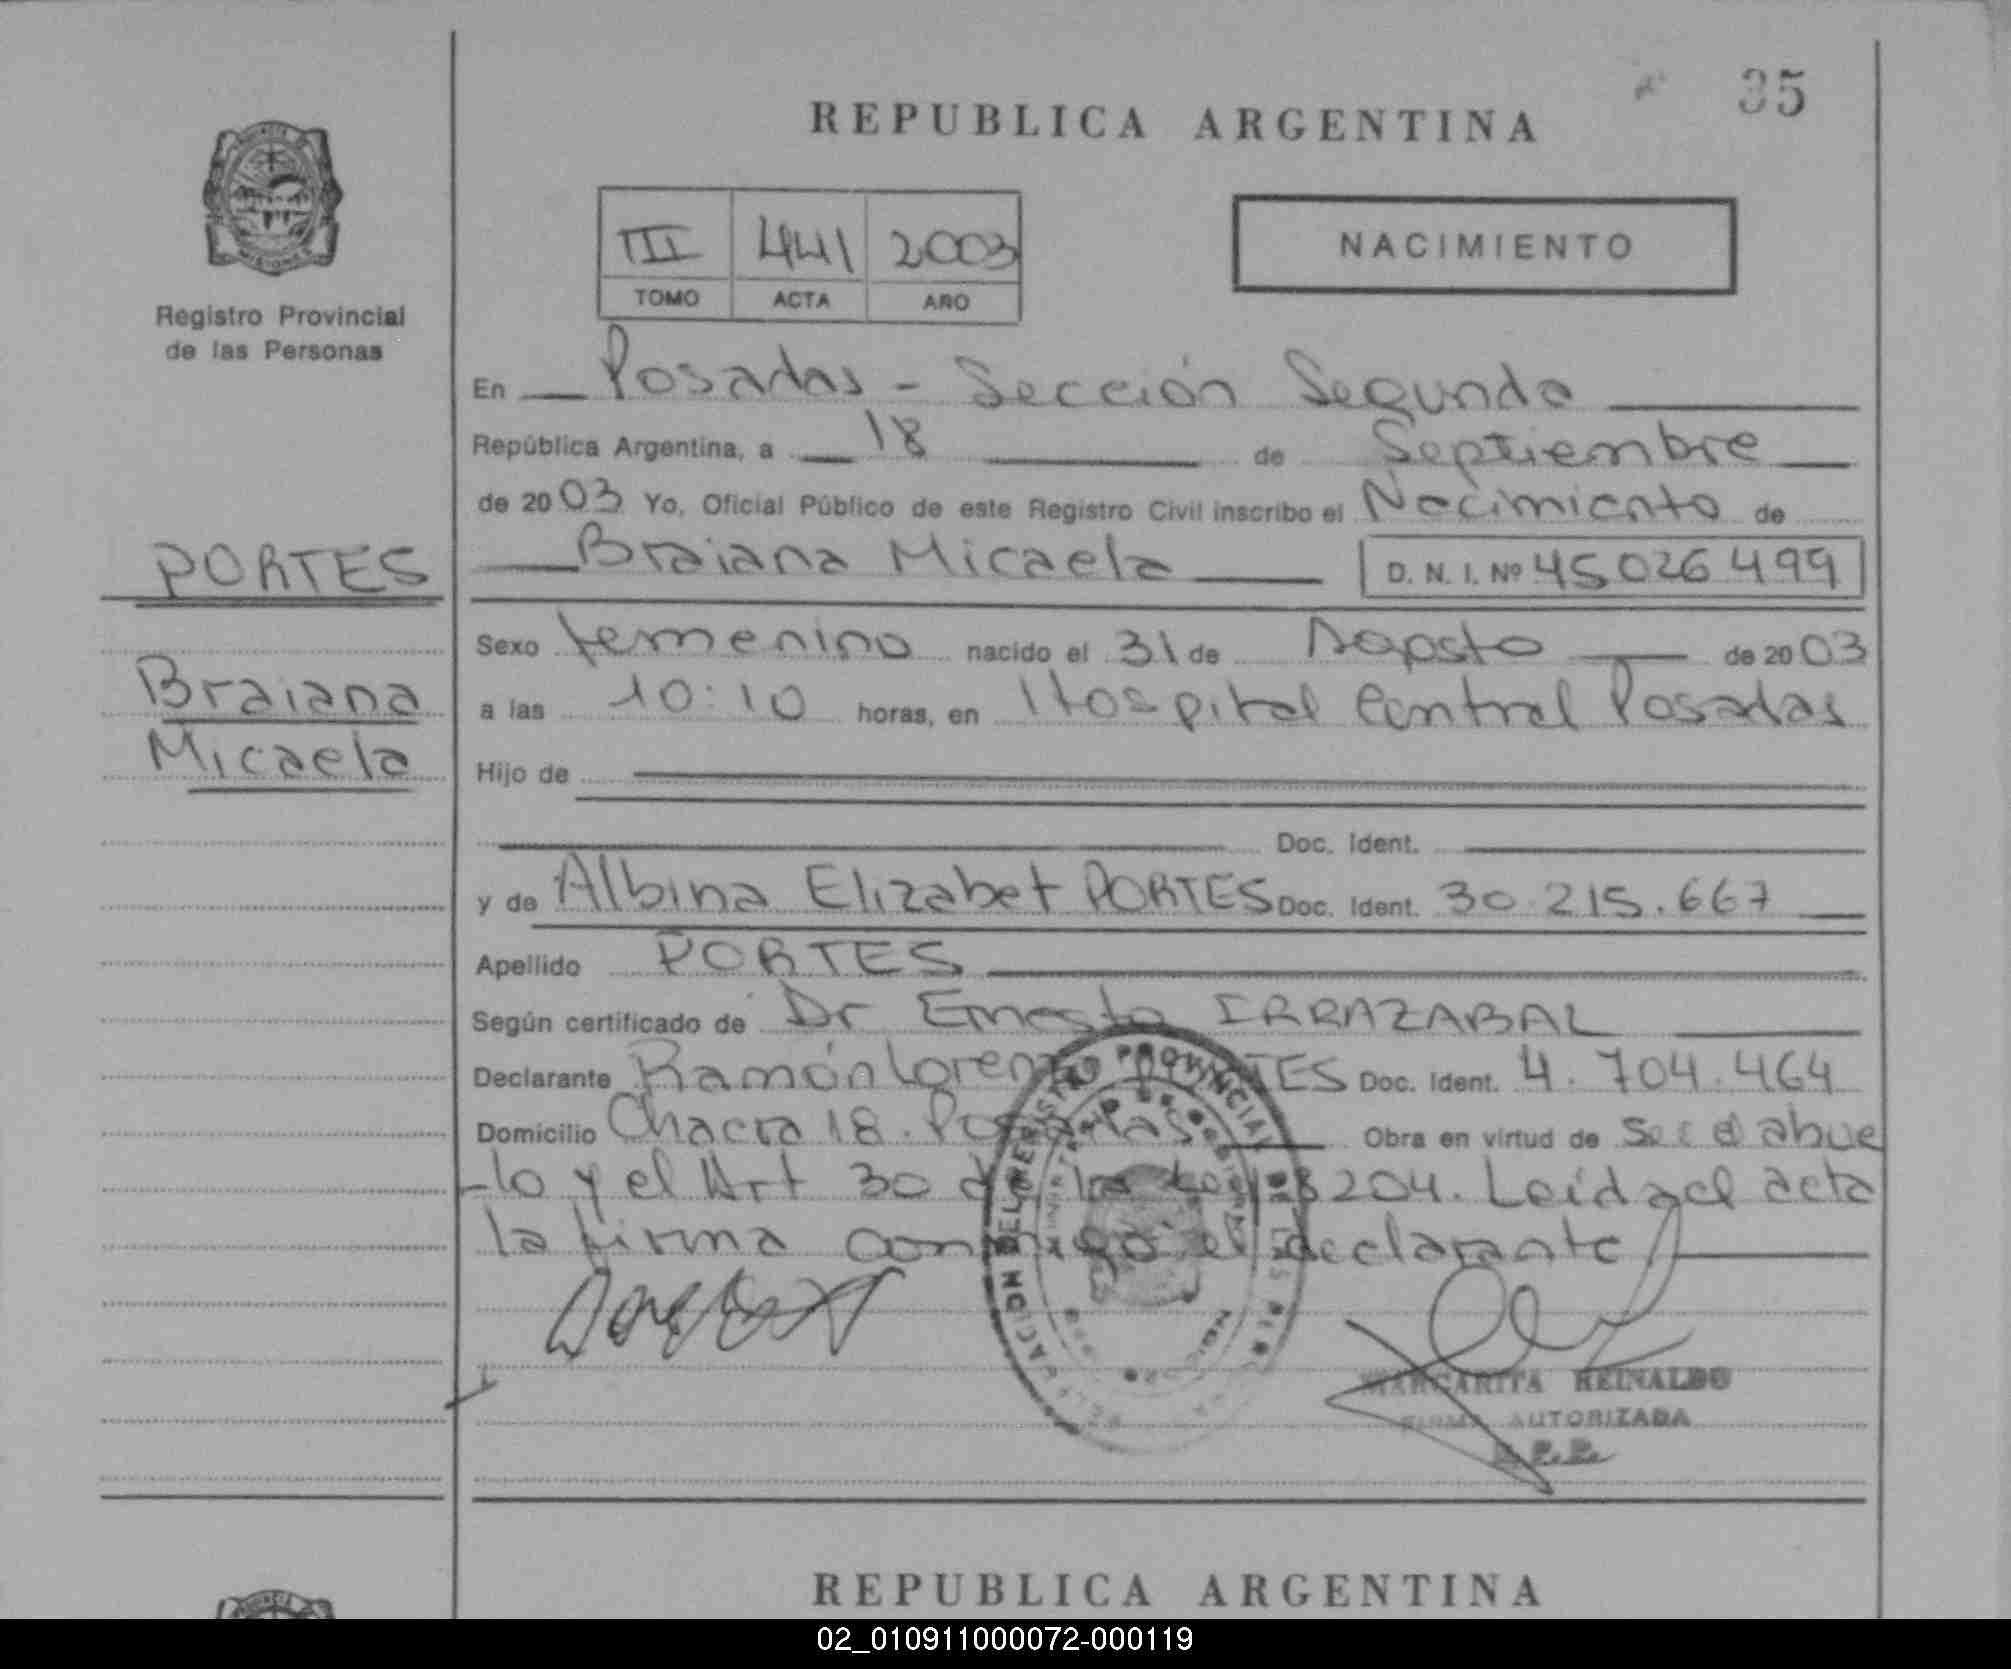 35
REPUBLICA ARGENTINA
NACIMIENTO
III 441 2003
TOMO ACTA AÑO
Registro Provincial
de las Personas
PORTES
Braiana
Micaela
En Posadas - Sección Segunda
República Argentina, a 18 de Septiembre
de 2003 Yo, Oficial Público de este Registro Civil inscribo el Nacimiento de
Braiana Micaela D. N. I. Nº 45026499
Sexo femenino nacido el 31 de Agosto de 2003
a las 10:10 horas, en Hospital Central Posadas
Hijo de
Doc. Ident.
y de Albina Elizabet PORTES Doc. Ident. 30.215.667
Apellido PORTES
Según certificado de Dr Ernesto IRRAZABAL
Declarante Ramón Lorenzo PORTES Doc. Ident. 4.704.464
Domicilio Chacra 18. Posadas Obra en virtud de ser el abue
-lo y el Art 30 de la Ley 8204. Leída el acta
la firma conmigo el declarante
MARGARITA REINALDO
FIRMA AUTORIZADA
R.P.P.
REPUBLICA ARGENTINA
02_010911000072-000119